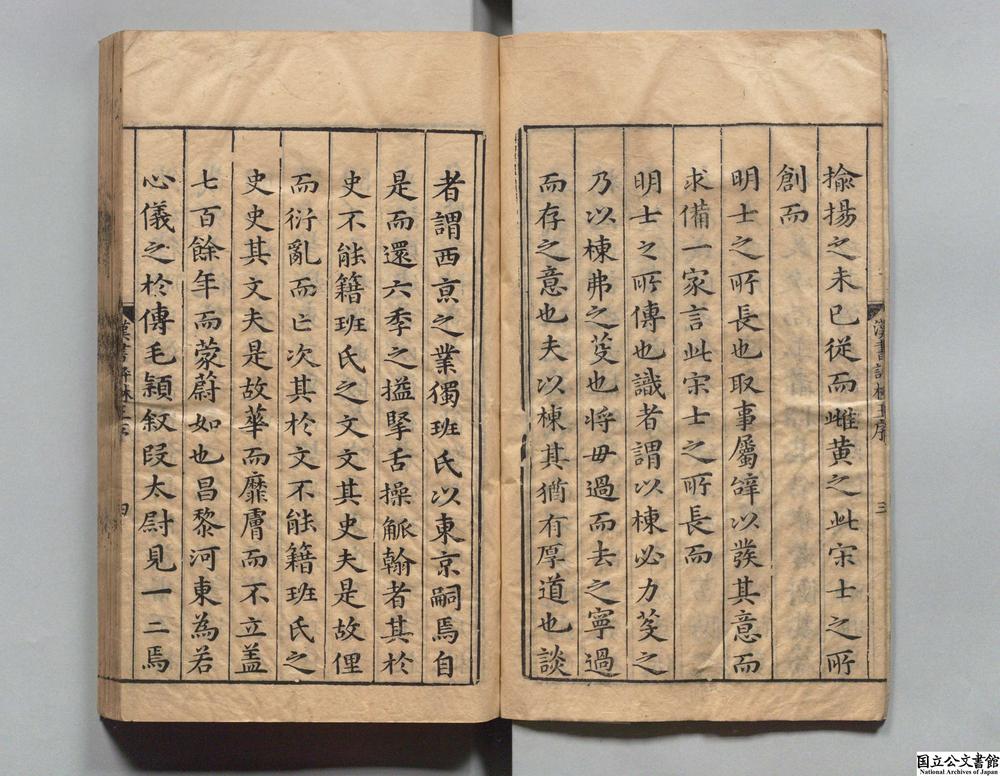 揄揚之未已從而雌黄之此宋士之所
創而
明士之所長也取事屬辭以發其意而
求備一家言此宋士之所長而
明士之所傳也識者謂以棟必力芟之
乃以棟弗之芟也将毋過而去之寧過
而存之意也夫以棟其猶有厚道也談
漢書評林王序
三
者謂西亰之業獨班氏以東京嗣焉自
是而還六季之搤掔舌操觚翰者其於
史不能籍班氏之文文其史夫是故俚
而衍亂而亡次其於文不能籍班氏之
史史其文夫是故華而靡膚而不立盖
七百餘年而蒙蔚如也昌黎河東為若
心儀之於傳毛穎叙段太尉見一二焉
漢書評林王序
四
国立公文書館
National Archives of Japan